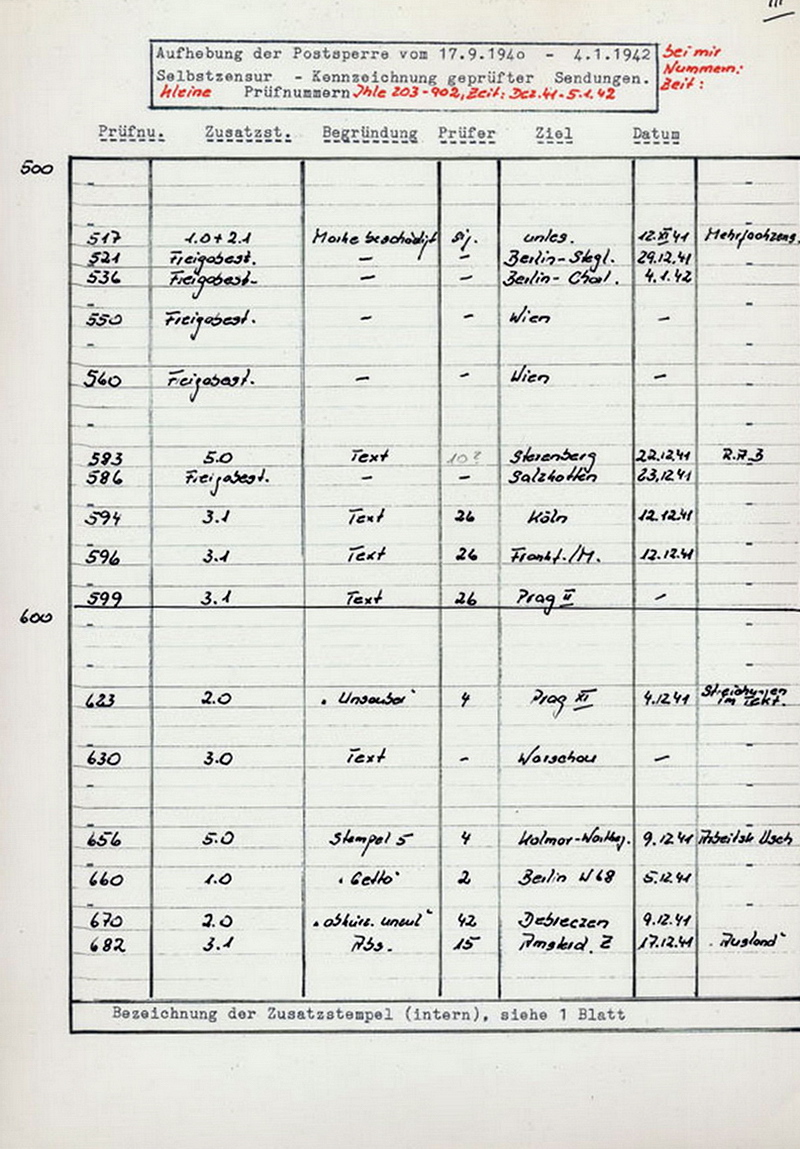 III
Aufhebung der Postsperre vom 17.9.1940 - 4.1.1942
Selbstzensur - Kennzeichnung geprüfter Sendungen.
kleine Prüfnummern Ihle 203-902, Zeit: Dez. 41-5.1.42
bei mir
Nummern:
Zeit:
Prüfnu. Zusatzst. Begründung Prüfer Ziel Datum
500
517 1.0+2.1 Marke beschädigt unles. 12.XI 41
521 Freigabest. — — Berlin-Stegl. 29.12.41
536 Freigabest. — — Berlin-Charl. 4.1.42
550 Freigabest. — — Wien —
560 Freigabest. — — Wien —
583 5.0 Text 10? Sterenberg 22.12.41
586 Freigabest. — — Salzkotten 23.12.41
594 3.1 Text 26 Köln 12.12.41
596 3.1 Text 26 Frankf./M. 12.12.41
599 3.1 Text 26 Prag II —
600
623 2.0 "Unsauber" 4 Prag XI 4.12.41 Streichungen
im Text.
630 3.0 Text - Warschau —
656 5.0 Stempel 5 4 9.12.41
660 1.0 "Getto" 2 Berlin W68 5.12.41
670 2.0 42 Debreczen 9.12.41
682 3.1 Abs. 15 Amsterd. Z 17.12.41 "Ausland"
Bezeichnung der Zusatzstempel (intern), siehe 1 Blatt